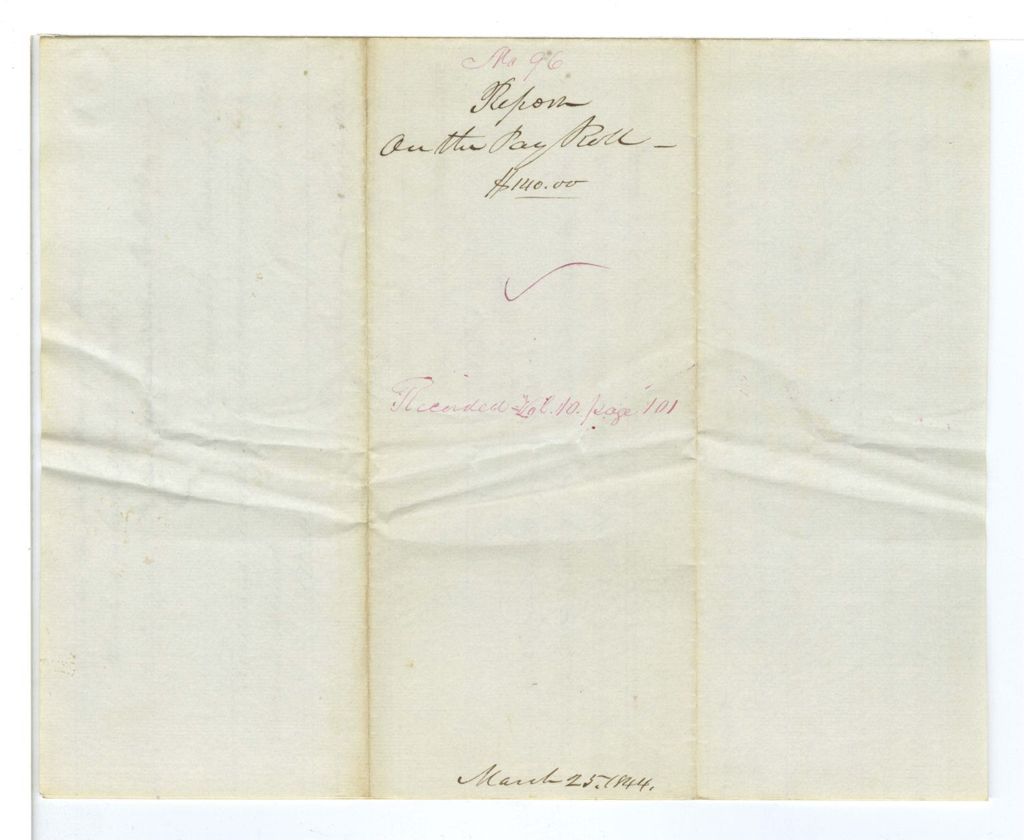 No 96
Report
On the Pay Roll —
$140.00
Recorded Vol. 10. page 101
March 25. 1844.